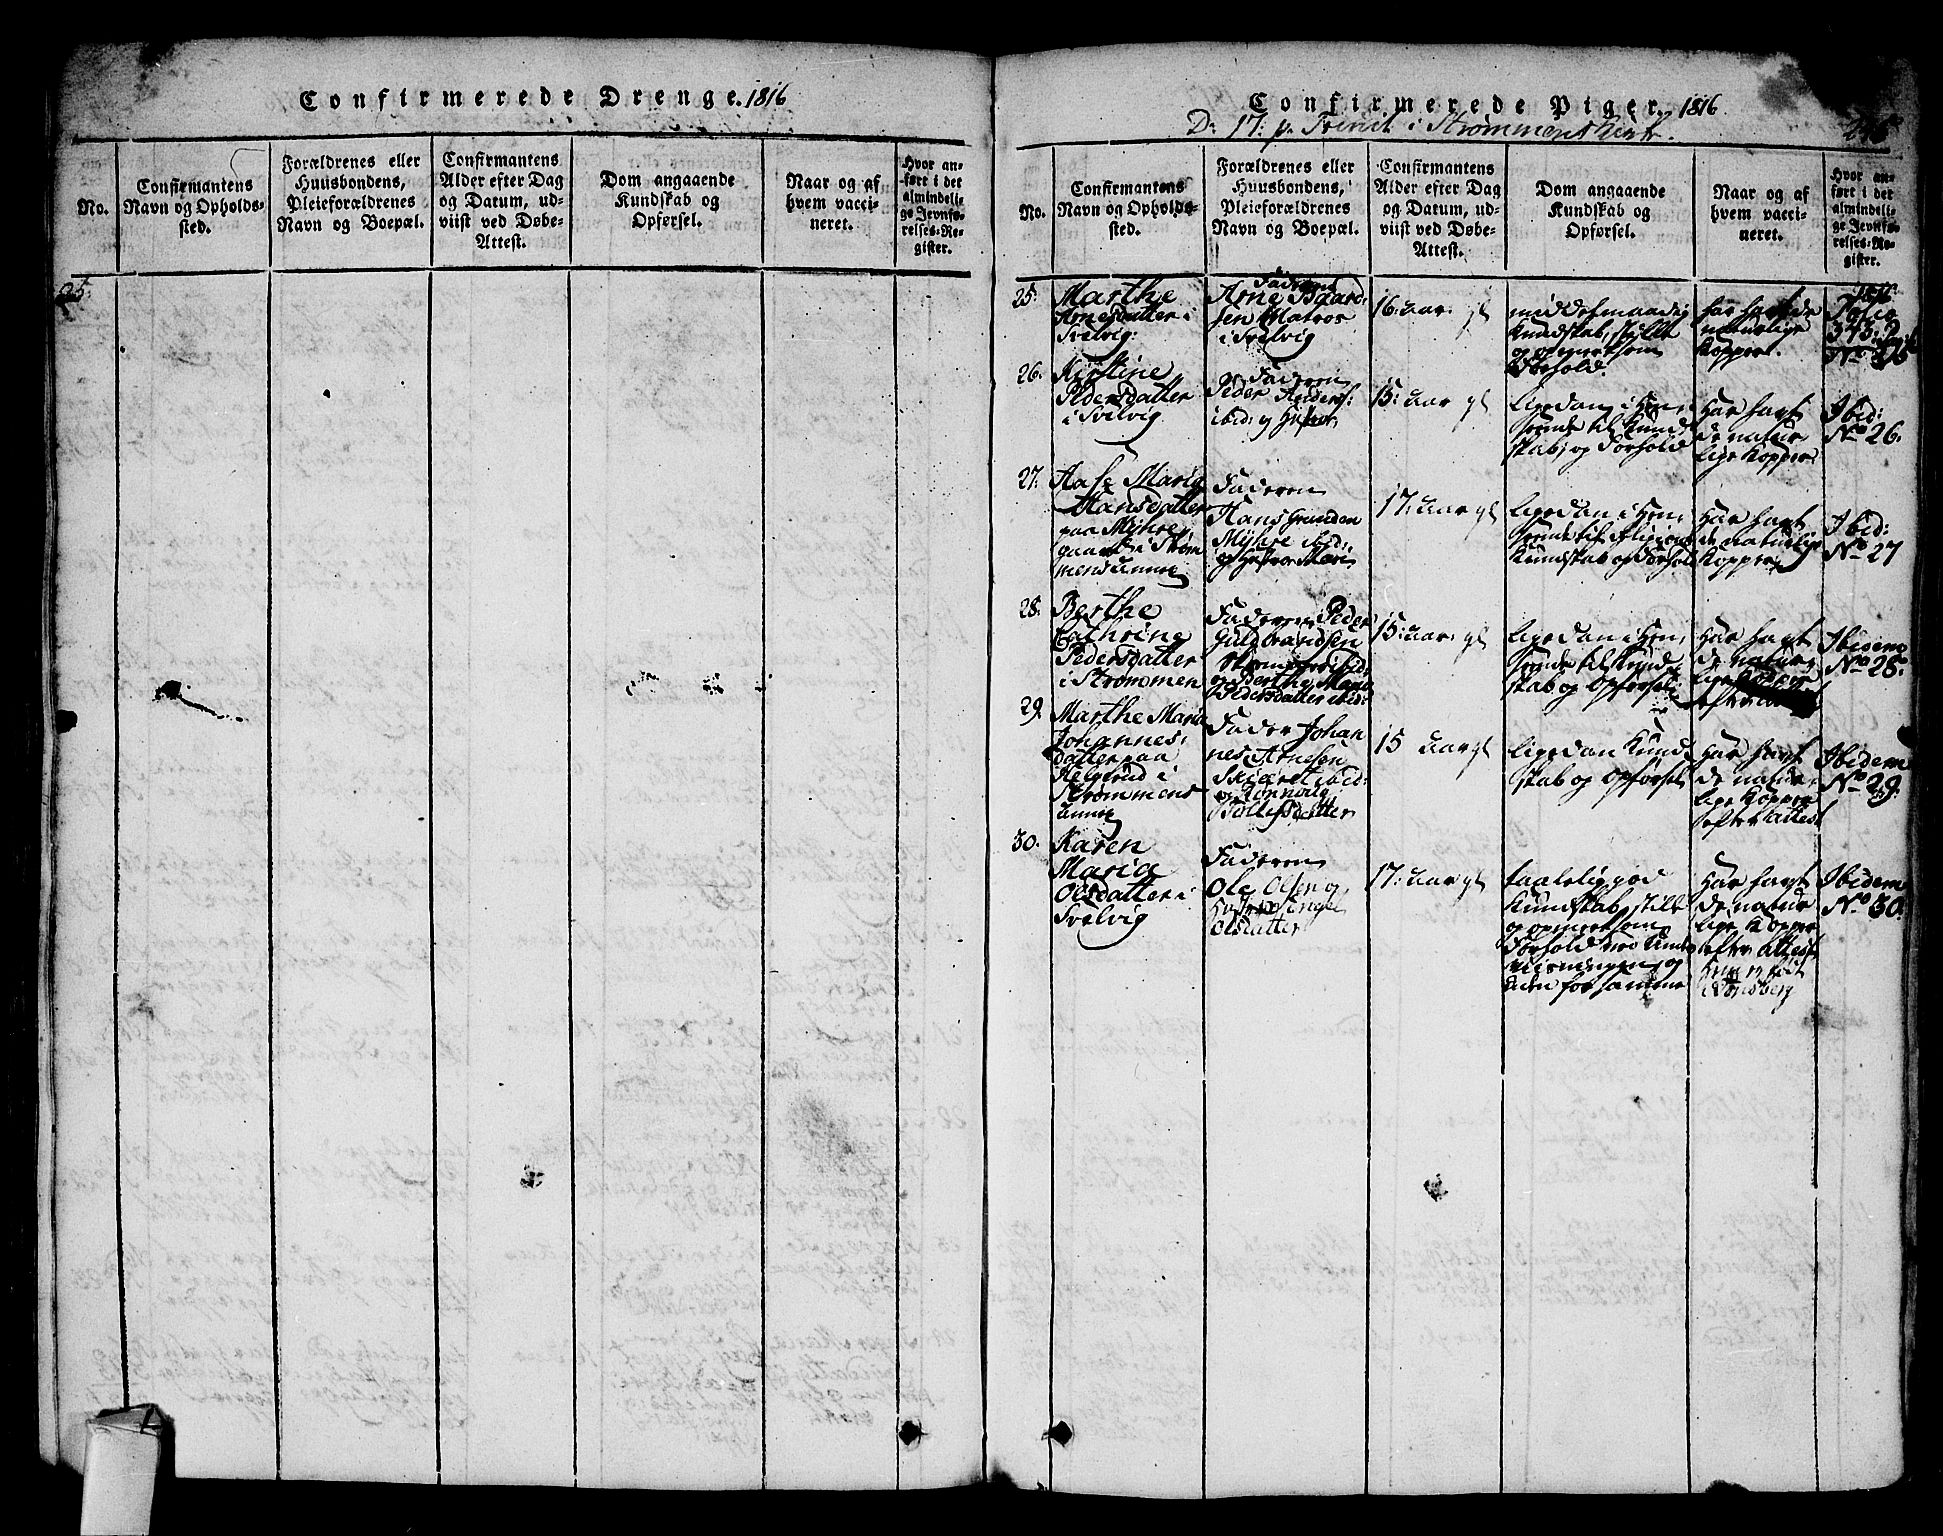 Confirmerede Drenge. 1816
No.
Confirmantens
Navn og Opholds-
sted.
Forældrenes eller
Huusbondens,
Pleieforældrenes
Navn og Boepæl.
Confirmantens
Alder efter Dag
og Datum, ud-
viist ved Døbe-
Attest.
Dom angaaende
Kundskab og
Opførsel.
Naar og af
hvem vacci-
neret.
Hvor an-
ført i det
almindeli-
ge Jevnfø-
relses-Re-
gister.
25:
Confirmerede Piger. 1816
D: 17: p. Trinit i Strømmens Kirke.
No.
Confirmantens
Navn og Opholds-
sted.
Forældrenes eller
Huusbondens,
Pleieforældrenes
Navn og Boepæl.
Confirmantens
Alder efter Dag
og Datum, ud-
viist ved Døbe-
Attest.
Dom angaaende
Kundskab og
Opførsel.
Naar og af
hvem vacci-
neret.
Hvor an-
ført i det
almindeli-
ge Jevnfø-
relses-Re-
gister.
25:
Marthe
Arnesdatter i
Svelvig:
Faderen
Arne Baard-
sen Matros
i Svelvig
16: aar gl
middelmaadig
Kundskab, stille
og opmerksom
Forhold.
har havt de
naturlige
Kopper.
Folio
343:
26.
Kirstine
Pedersdatter
i Svelvig
Faderen
Peder Anders:
ibid: og Hustroe
15: aar gl
ligedan i Hen-
seende til Kund
skab og Forhold
Har havt
de natur
lige Kopper
Ibid:
No 26.
27:
Aase Maria
Hansdatter
paa Myhre
gaard i Strøm
mens annex
Faderen
Hans
Myhre ibid:
og Hustroe Mari
17: aar gl
ligedan i Hen-
seende til Religions
Kundskab og Forhold
Har havt
de naturlige
Kopper
Ibid:
No 27
28.
Berthe
Cathrine
Pedersdatter
i Strømmen
Faderen Peder
Guldbrandsen
ibid:
og Berthe Maria
Pedersdatter ibid:
15: aar gl
ligedan i Hen-
seende til Kund-
skab og Opførsel
Har havt
de natur-
lige Kopper
efter
Ibidem
No 28.
29.
Marthe Maria
Johannes-
datter paa
Helgerud i
Strømmens
annex
Fader Johan
nes Arnesen
ibid:
og Rønnoug
Tollefsdatter
15 aar gl
ligedan Kund-
skab og Opførsel
Har havt
de natur-
lige Kopper
efter attest
Ibidem
No 29.
30.
Karen
Maria
Olsdatter i
Svelvig
Faderen
Ole Olsen og
Hustroe Inger
Olsdatter
17: aar gl
taalelig god
Kundskab, stille
og opmerksom
Forhold ved Under
viisningen og
uden for samme
Har havt
de natur
lige Kopper
efter attest
Hun er født
i
Ibidem
No 30.